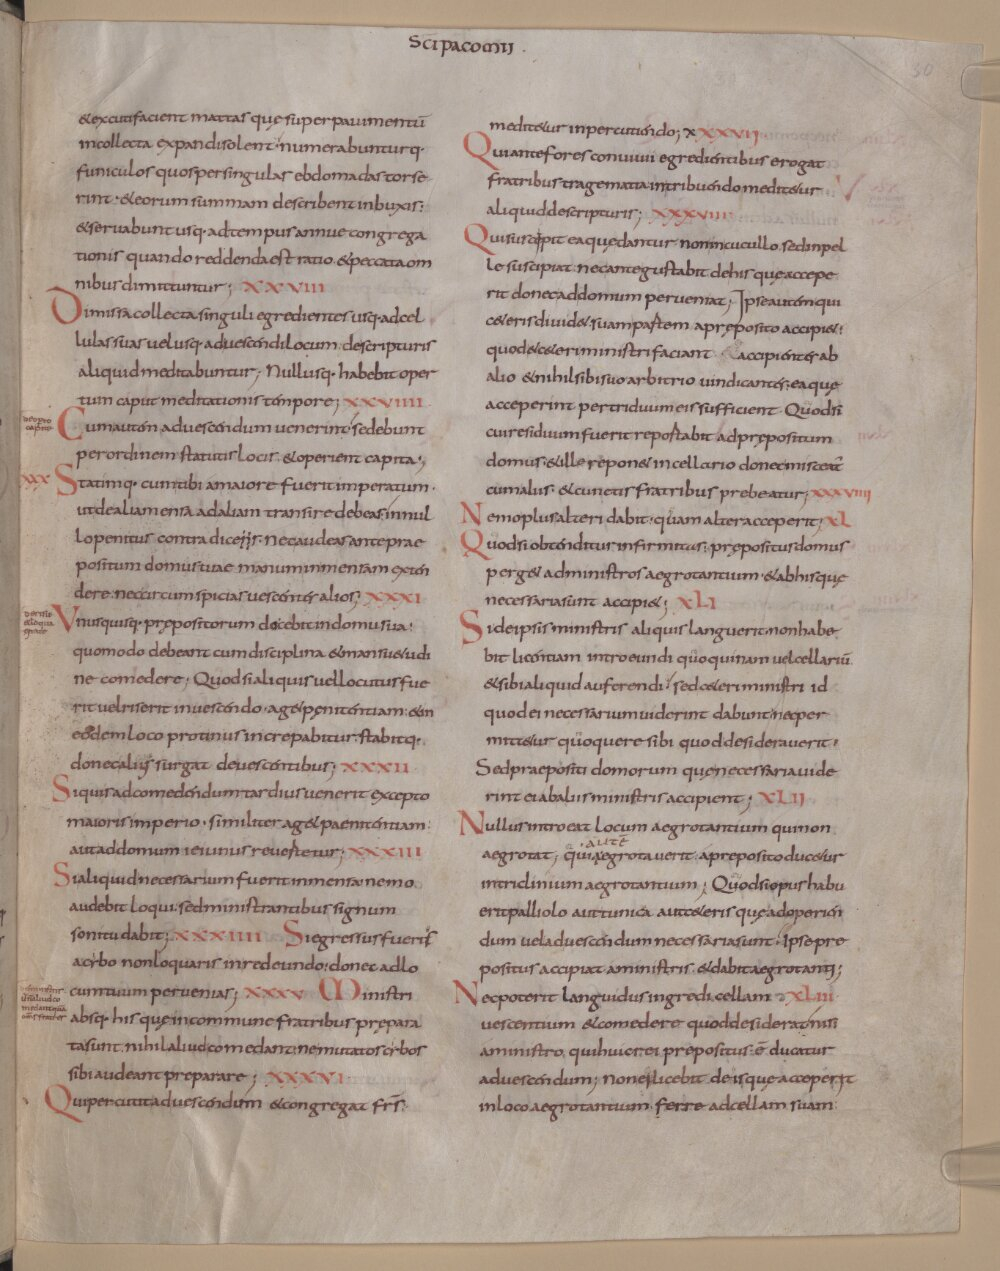 Sci pacomii .
30
&excutifacient mattas quę super pavimentū
incollecta expandi solent· numerabunturq·
funiculos quos per singulas ebdomadas torse
rint· & eorum summam describent inbuxis:
& servabunt usq· ad tempus annuę congrega
tionis quando reddenda est ratio & peccata om
nibus dimittuntur; XXVIII
Dimissa collecta singuli egredientes usq· adcel
lulas suas vel usq· ad vescendi locum· descripturis
aliquid meditabuntur; Nullusq· habebit oper
tum caput meditationis tempore; XXVIIII
de opto
capite
Cum autem ad vescendum venerint sedebunt
per ordinem statutis locis· & operient capita;
XXX Statimq· cum tibi a maiore fuerit imperatum·
ut de alia mensa ad aliam transire debeas· innul
lo penitus contradiceris· nec audeas ante prae
positum domus tuae manum in mensam exten
dere· nec circumspicias vescentes alios; XXXI
Vnusquisq· prepositorum docebit in domu sua:
quomodo debeant cum disciplina & mansu&udi
ne comedere; Quodsi aliquis vel locutus fue
rit vel riserit in vescendo· ag& penitentiam· & in
eodem loco protinus increpabitur stabitq·
donec alius surgat de vescentibus; XXXII
Siquis ad comedendum tardius venerit excepto
maioris imperio· similiter ag& paenitentiam:
aut ad domum ieiunus revertetur; XXXIII
Si aliquid necessarium fuerit in mensa nemo
audebit loqui· sed ministrantibus signum
sonitu dabit; XXXIIII Si egressus fueris
a cybo non loquaris in redeundo: donec ad lo
cum tuum pervenias; XXXV Ministri
absq· his quę in commune fratribus prepara
ta sunt· nihil aliud comedant: ne mutatos cybos
sibi audeant preparare; XXXVI
Qui percutit ad vescendum & congregat frs·
medit&ur in percutiendo; XXXVII
Qui ante fores convivii egredientibus erogat
fratribus tragematia in tribuendo medit&ur
aliquid descripturis; XXXVIII
Qui suscipit ea quę dantur non in cucullo· sed in pel
le suscipiat· nec ante gustabit de his quę accepe
rit donec ad domum perveniat; Ipse autem qui
c&eris divid& suam partem a pręposito accipi&:
quod & c&eri ministri faciant· accipientes ab
alio & nihil sibi suo arbitrio vindicantes: ea quę
acceperint per triduum eis sufficient· Quodsi
cui residuum fuerit reportabit ad prępositum
domus· & ille repon& in cellario donec misceat̄
cum aliis· & cunctis fratribus prebeatur; XXXVIIII
Nemo plus alteri dabit· quam alter acceperit; XL
Quodsi obtenditur infirmitas: prępositus domus
perg& ad ministros aegrotantium· & ab his quę
necessaria sunt accipi&; XLI
Si de ipsis ministris aliquis languerit· non habe
bit licentiam introeundi quoquinam vel cellariū
& sibi aliquid auferendi· sed c&eri ministri id
quod ei necessarium viderint dabunt· nec per
mitt&ur quoquere sibi quod desideraverit·
Sed praepositi domorum quę necessaria vide
rint ei ab aliis ministris accipient; XLII
Nullus intro eat locum aegrotantium qui non
aegrotat; qui autē aegrotaverit· a pręposito duc&ur
in tridinium aegrotantium; Quodsi opus habu
erit palliolo aut tunica aut c&eris quę ad operien
dum vel ad vescendum necessaria sunt· Ipse pre
positus accipiat a ministris & dabit aegrotanti;
Nec poterit languidus ingredi cellam XLIII
vescentium & comedere quod desiderat nisi
a ministro qui huic rei prepositus· ē ducatur
ad vescendum; non ei licebit de is quę acceperit
in loco aegrotantium ferre ad cellam suam·